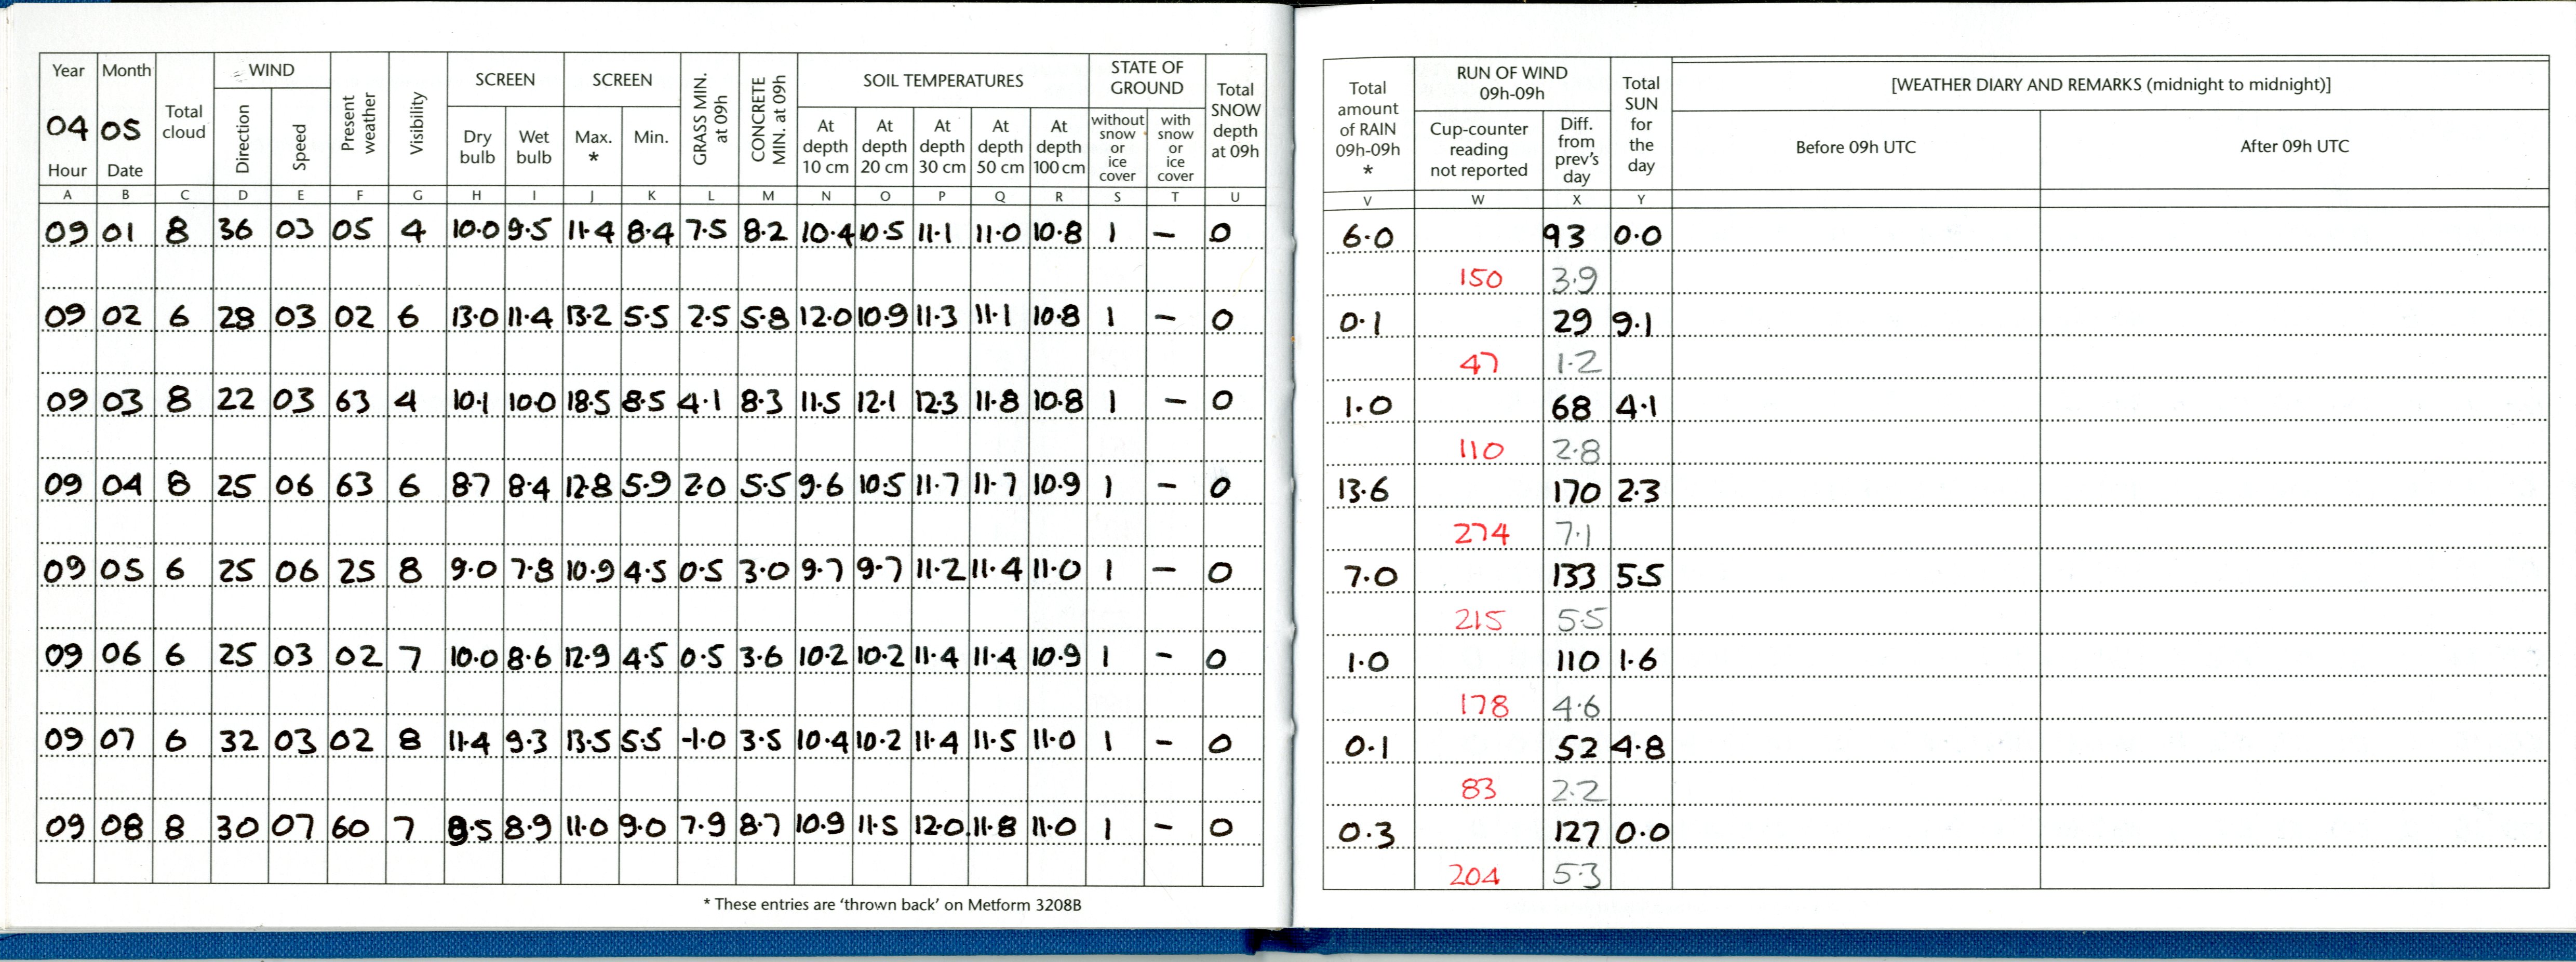 Year Month Total cloud WIND Present weather Visibility SCREEN SCREEN GRASS MIN. at 09h CONCRETE MIN. at 09h SOIL TEMPERATURES STATE OF GROUND Total SNOW depth at 09h Total amount of RAIN 09h-09h * RUN OF WIND 09h-09h Total SUN for the day [WEATHER DIARY AND REMARKS (midnight to midnight)]
04 05
Hour Date Direction Speed Dry bulb Wet bulb Max. * Min. At depth 10 cm At depth 20 cm At depth 30 cm At depth 50 cm At depth 100 cm without snow or ice cover with snow or ice cover Cup-counter reading not reported Diff. from prev's day Before 09h UTC After 09h UTC
A B C D E F G H I J K L M N O P Q R S T U V W X Y
09 01 8 36 03 05 4 10.0 9.5 11.4 8.4 7.5 8.2 10.4 10.5 11.1 11.0 10.8 1 – 0 6.0 93 0.0
150 3.9
09 02 6 28 03 02 6 13.0 11.4 13.2 5.5 2.5 5.8 12.0 10.9 11.3 11.1 10.8 1 – 0 0.1 29 9.1
47 1.2
09 03 8 22 03 63 4 10.1 10.0 18.5 8.5 4.1 8.3 11.5 12.1 12.3 11.8 10.8 1 – 0 1.0 68 4.1
110 2.8
09 04 8 25 06 63 6 8.7 8.4 12.8 5.9 2.0 5.5 9.6 10.5 11.7 11.7 10.9 1 – 0 13.6 170 2.3
274 7.1
09 05 6 25 06 25 8 9.0 7.8 10.9 4.5 0.5 3.0 9.7 9.7 11.2 11.4 11.0 1 – 0 7.0 133 5.5
215 5.5
09 06 6 25 03 02 7 10.0 8.6 12.9 4.5 0.5 3.6 10.2 10.2 11.4 11.4 10.9 1 – 0 1.0 110 1.6
178 4.6
09 07 6 32 03 02 8 11.4 9.3 13.5 5.5 -1.0 3.5 10.4 10.2 11.4 11.5 11.0 1 – 0 0.1 52 4.8
83 2.2
09 08 8 30 07 60 7 8.9 11.0 9.0 7.9 8.7 10.9 11.5 12.0 11.8 11.0 1 – 0 0.3 127 0.0
204 5.3
* These entries are 'thrown back' on Metform 3208B